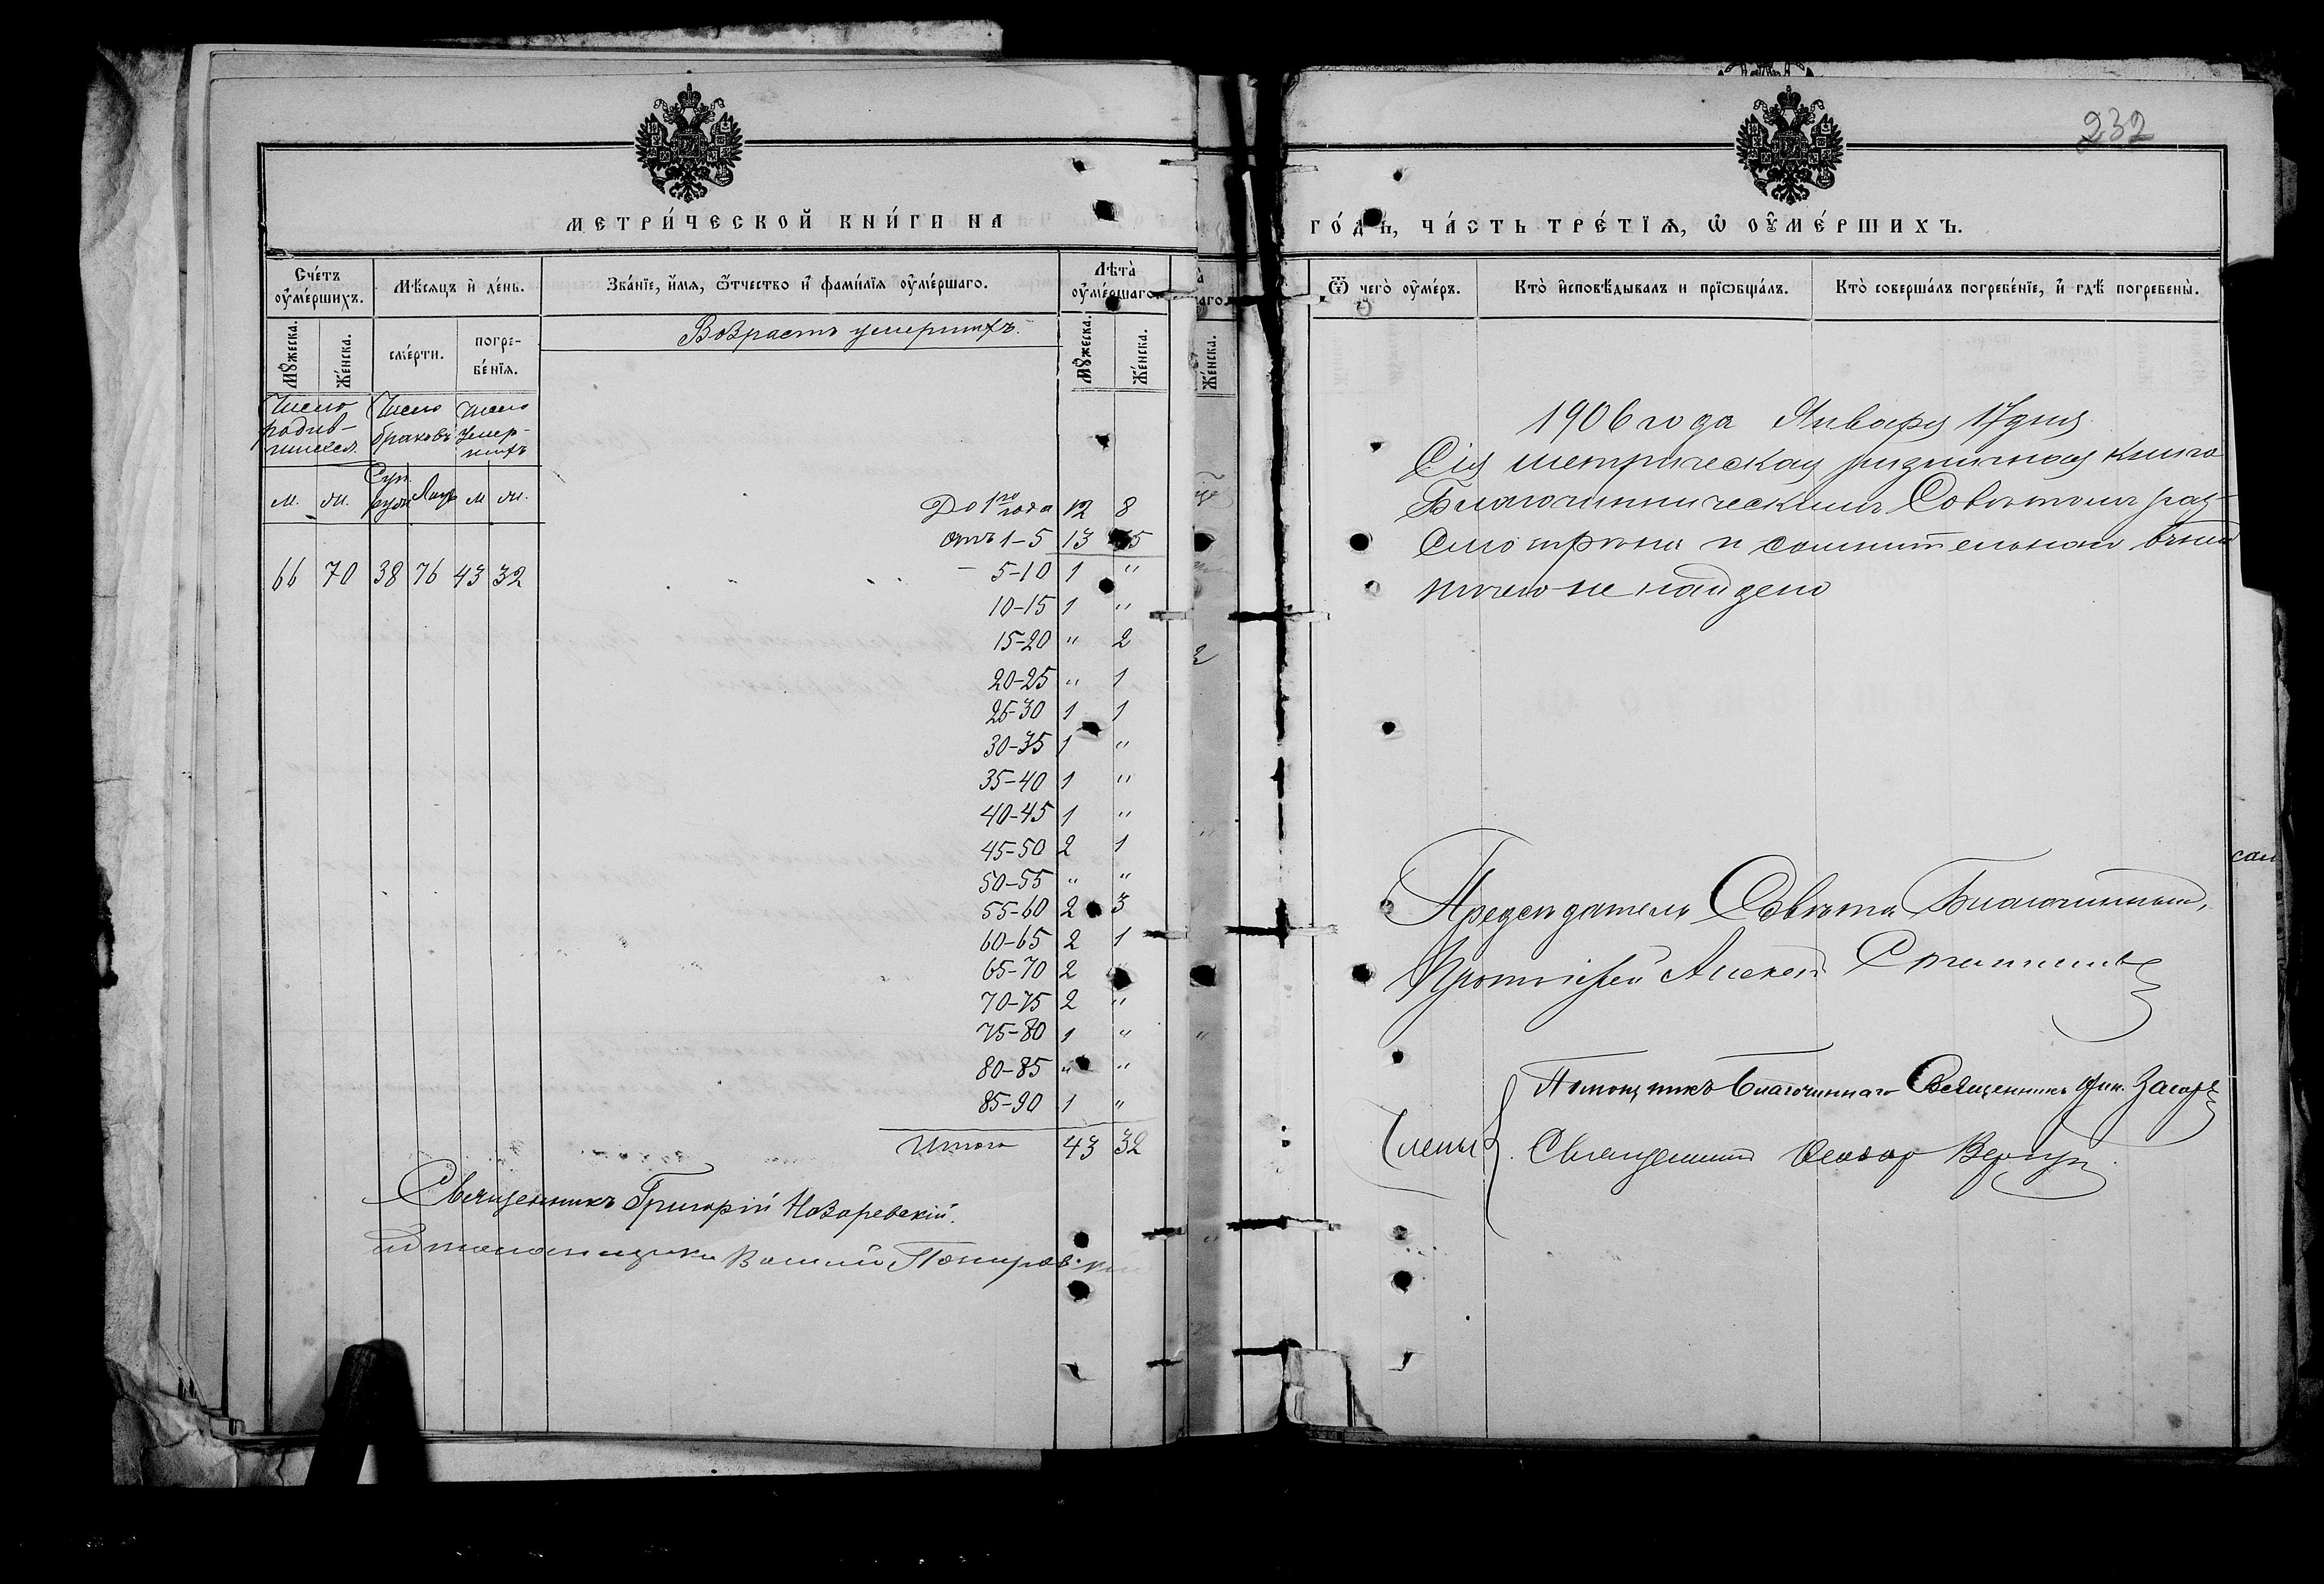 232
МЕТРИ́ЧЕСКОЙ КНИ́ГИ НА
Сче́тъ оу҆ме́ршихъ.
Мѣ́сяцъ и҆ де́нь.
Зва́нїе, и҆́мя, ѻ҆́тчество и҆ фами́лїя оу҆ме́ршаго.
Лѣта̀ оу҆ме́ршаго.
Мꙋ́жеска.
Же́нска.
сме́рти.
погре-
бе́нїя.
Возрастъ умершихъ.
Мꙋ́жеска.
Же́нска.
Число родив-шихся.
Число браковъ
Число умер-шихъ
м. ж. Суп Лиц м ж.
66 70 38 76 43 32
До 1го года 12 8
отъ 1-5 13 15
5-10 1 "
10-15 1 "
15-20 " 2
20-25 " 1
25-30 1 1
30-35 1 "
35-40 1 "
40-45 1 "
45-50 2 1
50-55 " "
55-60 2 3
60-65 2 1
65-70 2
70-75 2 "
75-80 1 "
80-85 " "
85-90 1 "
Итого 43 32
Священникъ Григорій
ГО́ДЪ, ЧА́СТЬ ТРЕ́ТЇѦ, Ѡ҆ ОУ҆МЕ́РШИХЪ.
Ѿ чего̀ оу҆ме́ръ.
Кто̀ и҆сповѣ́дывалъ и прїѡбща́лъ.
Кто̀ соверша́лъ погребе́нїе, и҆ гдѣ̀ погребены̀.
1906 года Января 17 дня
Сія метрическая ризничная книга
Благочинническимъ Совѣтомъ раз-
смотрѣна и сомнительнаго въ ней
ничего не найдено
Предсѣдатель Совѣта Благочинный,
Протоіерей Алексѣй
Члены
Помощникъ Благочиннаго Священникъ
Священникъ Ѳеодор